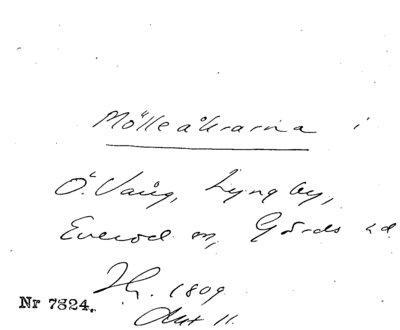 Mölleåkrarna i
Ö. Vång, Lyngby,
Everöd sn, Gärds hd
1809
Nr 7824.
Akt 11.